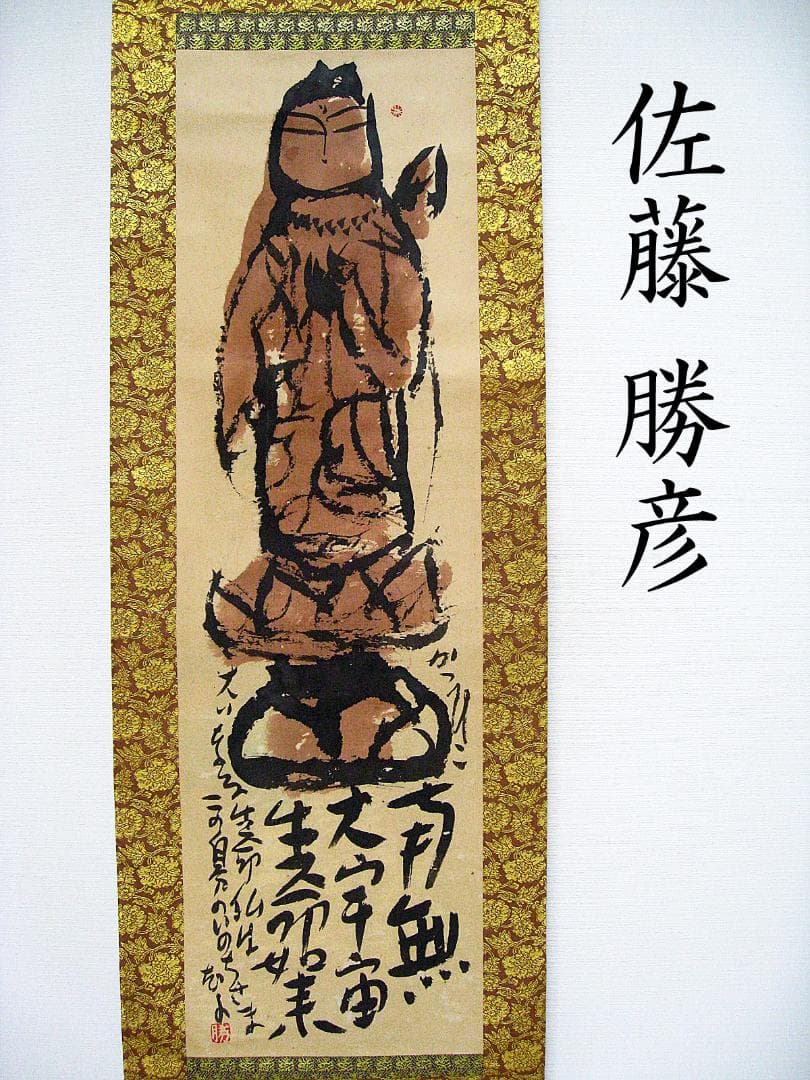 佐藤 勝彦
かつひこ
南無
大宇宙
生命如来
大いなる生命仏生
この自分のいのちさま
勝